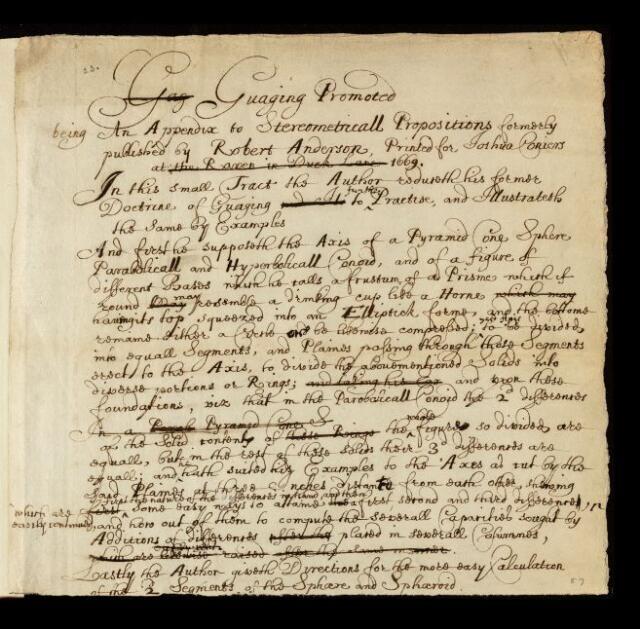 23.
Gag Guaging Promoted
being An Appendix to Stereometricall Propositions formerly
published by Robert Anderson, Printed for Joshua Coniers
at the Raven in Duck Lane 1669.
In this small Tract the Author reduceth his former
Doctrine of Guaging to further Practise, and Illustrateth
the same by Examples
And first he supposeth the Axis of a Pyramid Cone Sphere
Parabolicall and Hyperbolicall Conoid, and of a figure of
different Bases which he calls a frustum of a Prisme which if
round may resemble a drinking cup like a Horne which may
having its top squeezed into an Elliptick forme, and the bottome
remaine either a Circle or be likewise compressed; to be divided
into equall Segments, and Plaines passing through these Segments
erect to the Axis, to divide the abovementioned Solids into
diverse portions or Rings; and upon these
foundations, viz that in the Parabolicall Conoid the 2d differences
In a Pyramid Cone &
of the Solid content of these Rings the whole figure so divided are
equall, but in the rest of these solids their 3d differences are
equall; and hath suited his Examples to the Axes as cut by the
said Plaines at three Inches distance from each other, shewing
the nature of the differences
some easy ways to attaine first second and third differences,
which are easily continued, and how out of them to compute the severall Capacities sought by
Additions of differences placed in severall Columnes,
which are raised after the same manner.
Lastly the Author giveth Directions for the more easy Calculation
of the 2 Segments of the Sphære and Sphæroid.